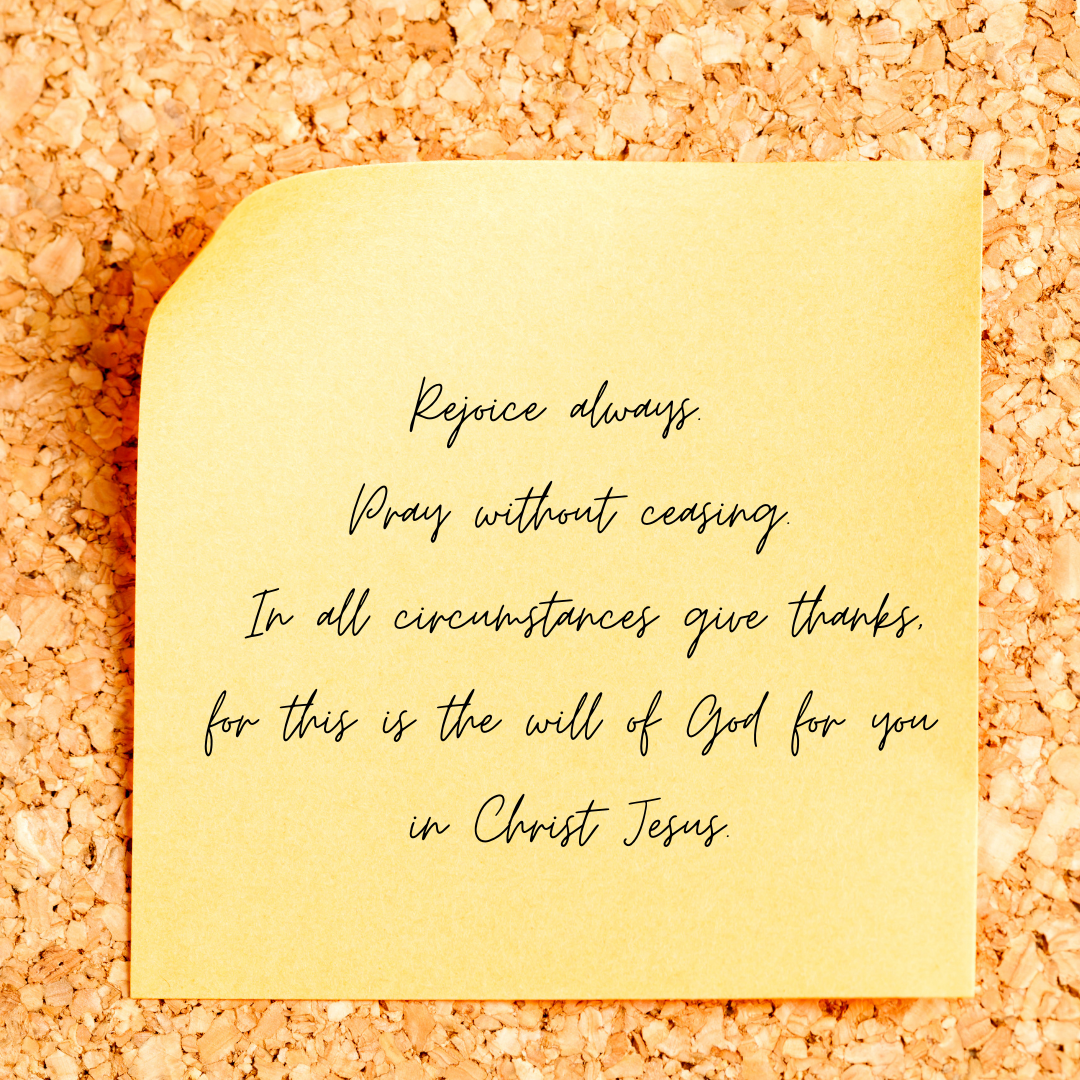 Rejoice always.
Pray without ceasing.
In all circumstances give thanks,
for this is the will of God for you
in Christ Jesus.